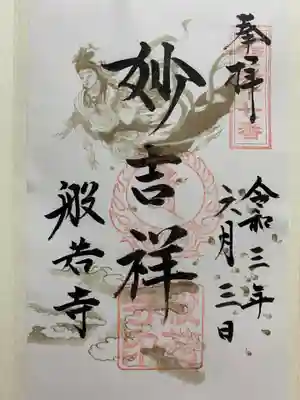 奉拝
妙吉祥
令和三年
六月三日
般若寺